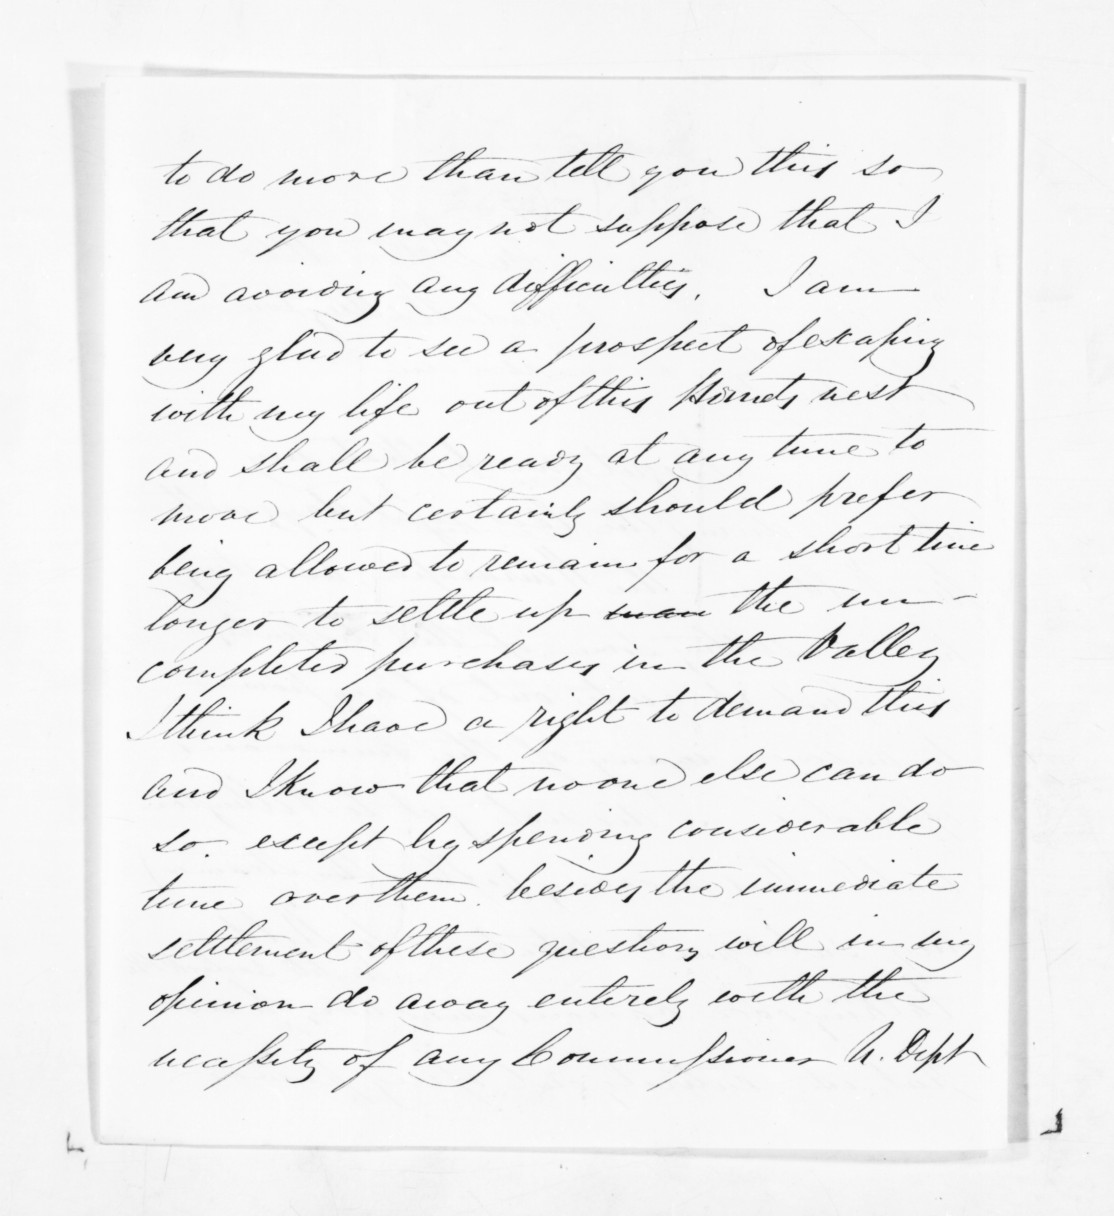 to do more than tell you this so
that you may not suppose that I
am avoiding any difficulties. I am
very glad to see a prospect of escaping
with my life out of this Hornets nest
and shall be ready at any time to
move but certainly should prefer
being allowed to remain for a short time
longer to settle up the un-
completed purchases in the Valley
I think I have a right to demand this
and I know that no one else can do
so. except by spending considerable
time over them. besides the immediate
settlement of these questions will in my
opinion do away entirely with the
necessity of any Commissioner N. Dept